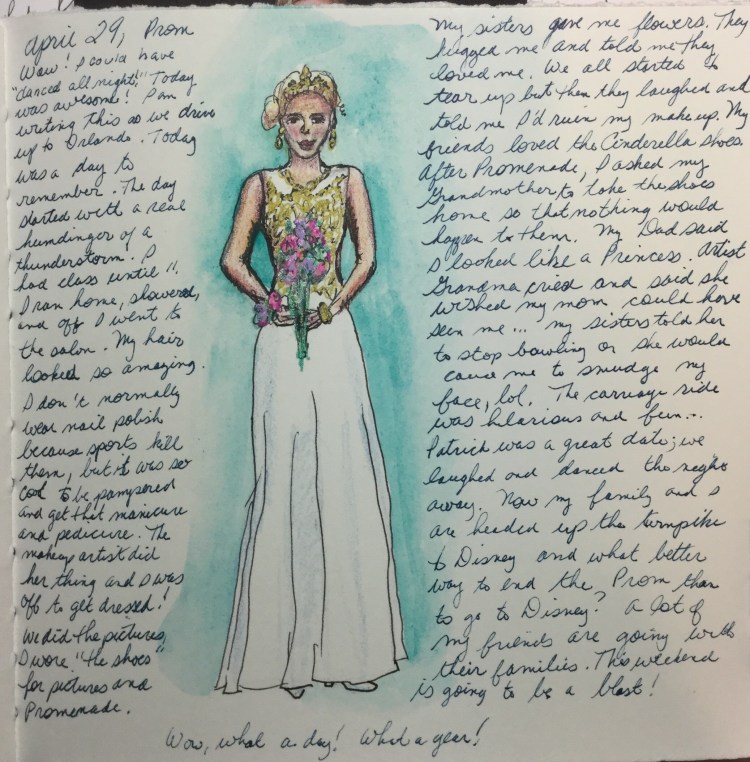 april 29, Prom
Wow! I could have
"danced all night!" Today
was awesome! I am
writing this as we drive
up to Orlando. Today
was a day to
remember. The day
started with a real
humdinger of a
thunderstorm. I
had class until 11.
I ran home, showered,
and off I went to
the salon. My hair
looked so amazing.
I don't normally
wear nail polish
because sports kill
them, but it was so
cool to be pampered
and get that manicure
and pedicure. The
makeup artist did
her thing and I was
off to get dressed!
We did the pictures,
I wore "the shoes"
for pictures and
Promenade.
My sisters gave me flowers. They
hugged me and told me they
loved me. We all started to
tear up but then they laughed and
told me I'd ruin my makeup. My
friends loved the Cinderella shoes.
After Promenade, I asked my
Grandmother to take the shoes
home so that nothing would
happen to them. My Dad said
I looked like a Princess. Artist
Grandma cried and said she
wished my mom could have
seen me... my sisters told her
to stop bawling or she would
cause me to smudge my
face, lol. The carriage ride
was hilarious and fun...
Patrick was a great date; we
laughed and danced the night
away. Now my family and I
are headed up the turnpike
to Disney and what better
way to end the Prom than
to go to Disney? A lot of
my friends are going with
their families. This weekend
is going to be a blast!
Wow, what a day! What a year!